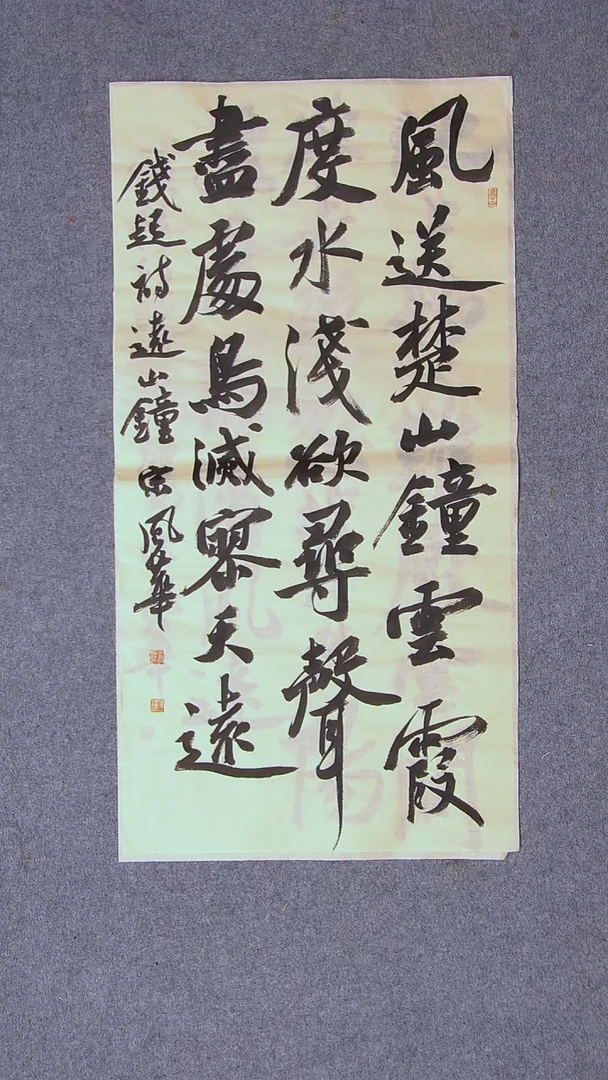 風送楚山鐘雲霞
度水淺欲尋聲
盡處鳥滅寥天遠
錢起詩遠山鐘 風華